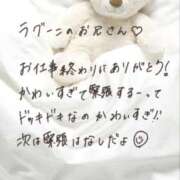 ラグーンのお兄さん♡
お仕事終わりにありがとう!
かわいすぎて緊張するーって
ドッキドキなのかわいすぎ!!
次は緊張はなしだよ☺